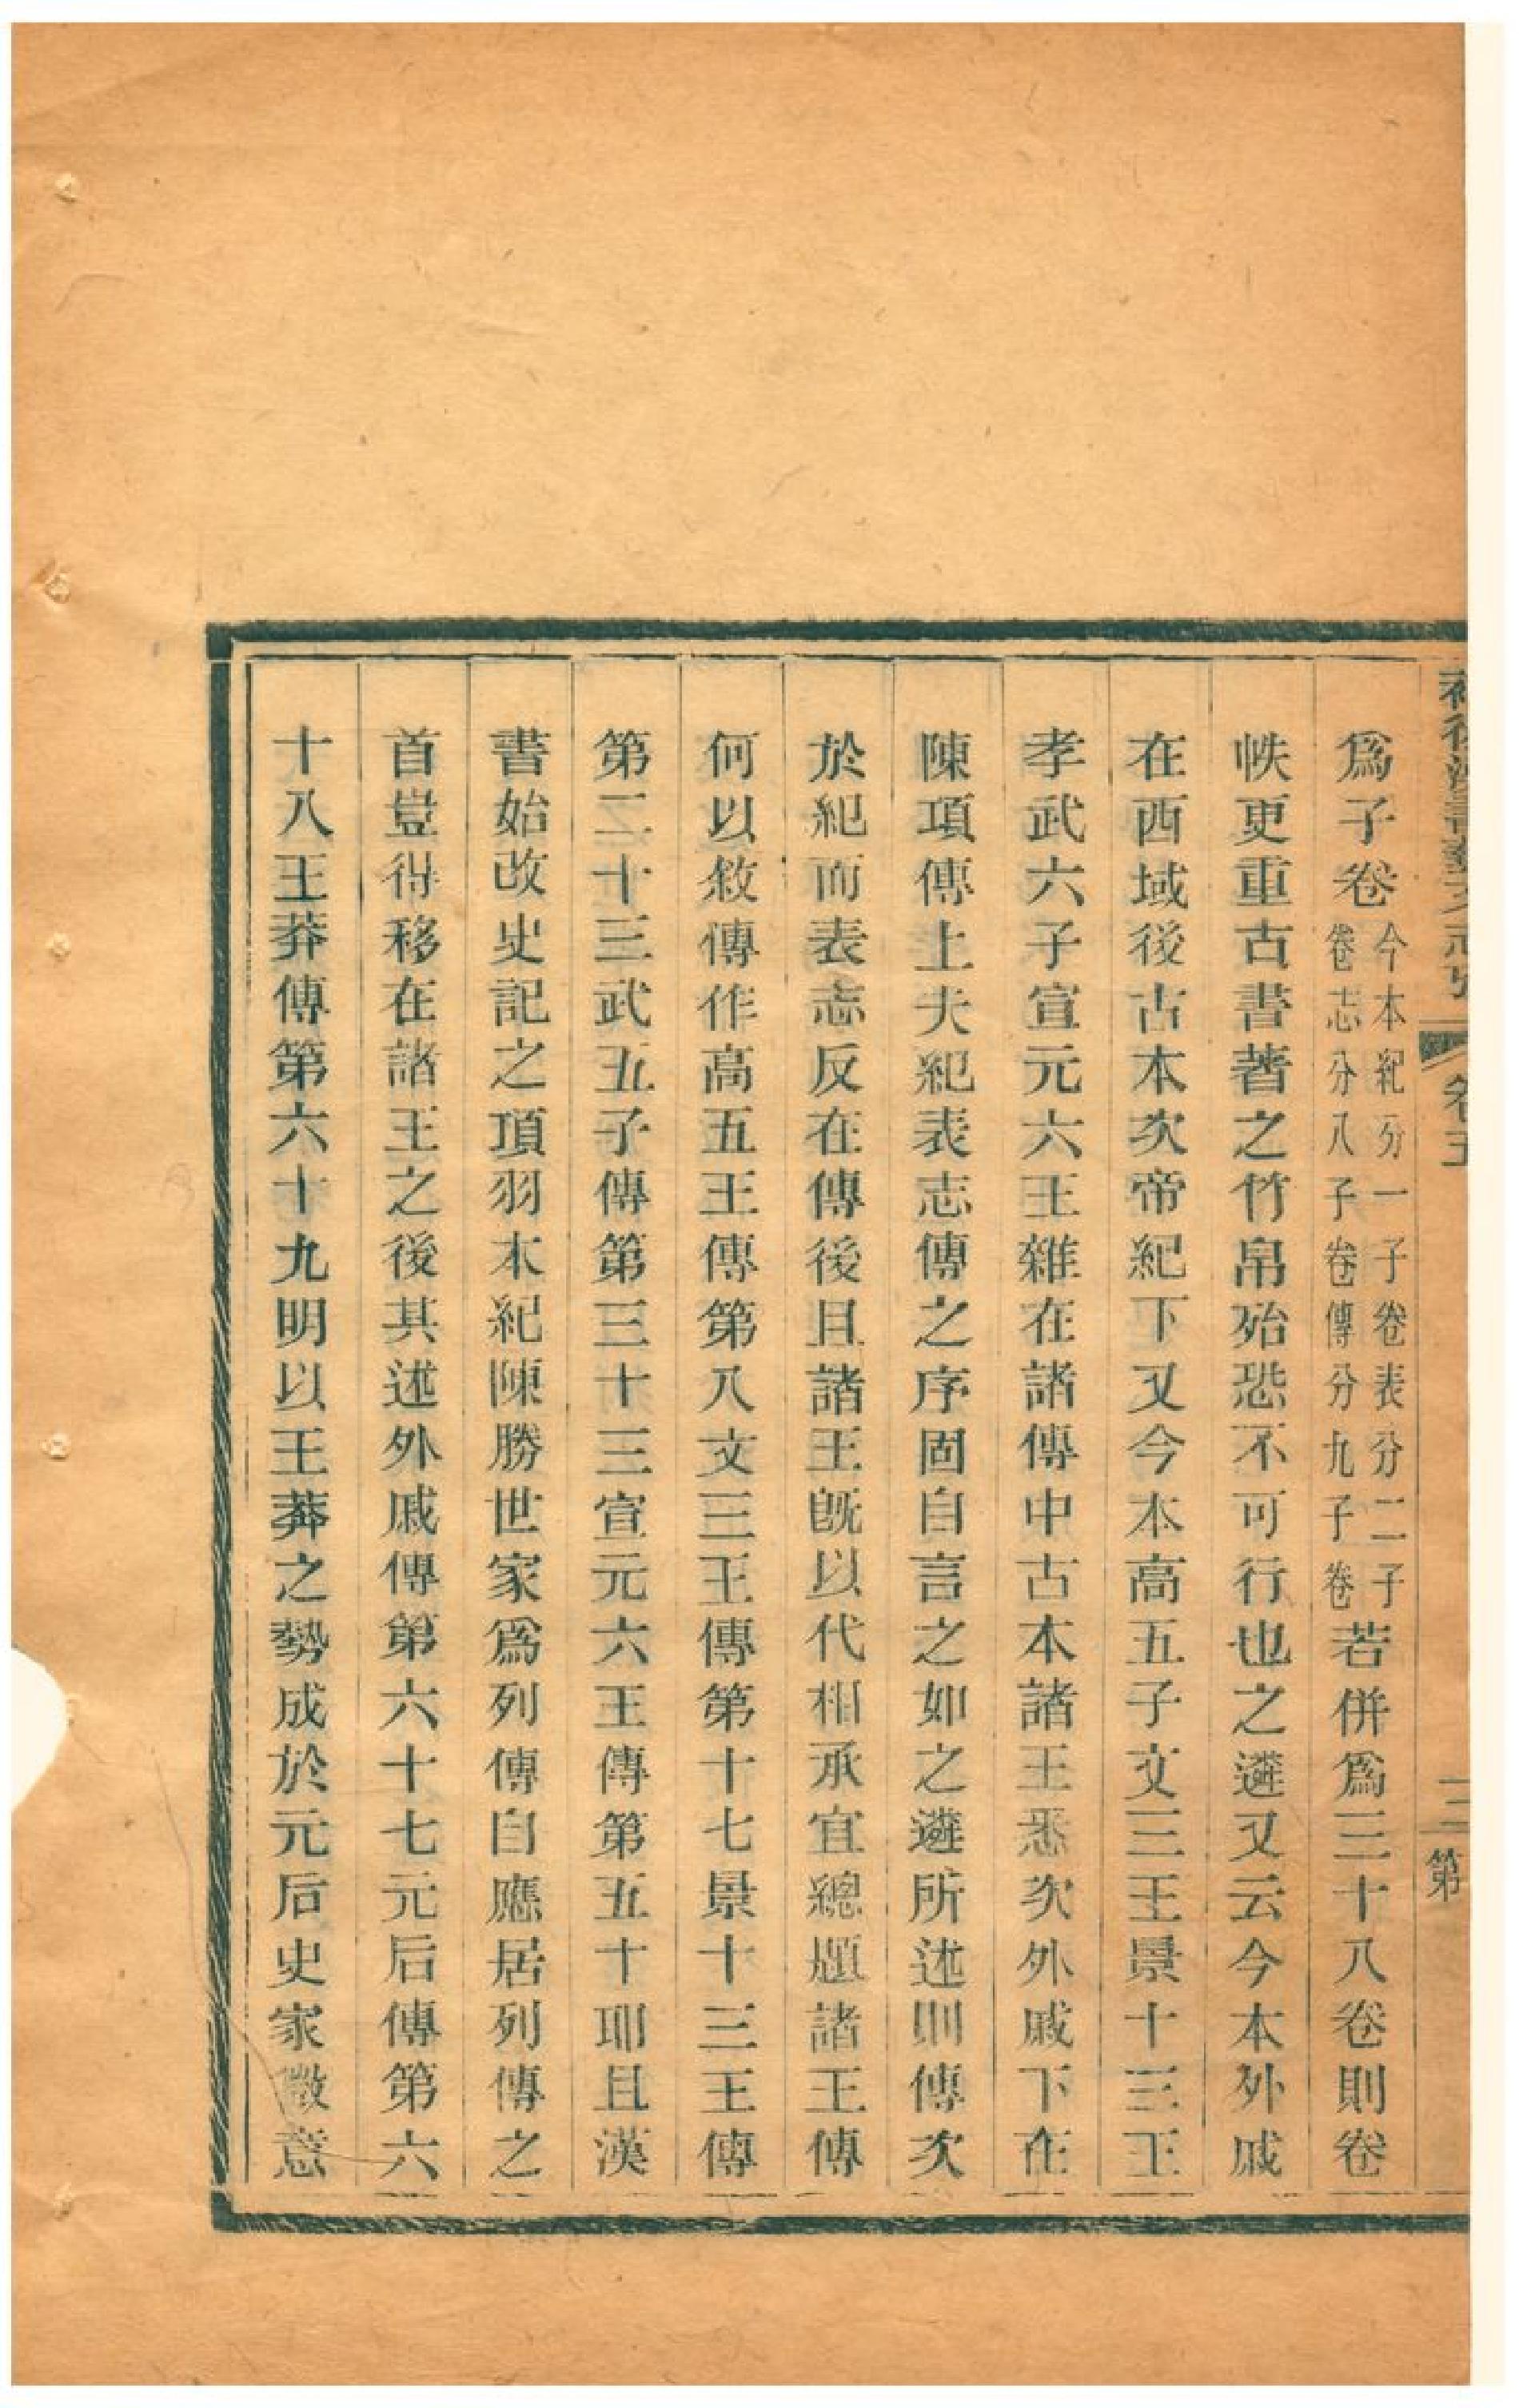 爲子卷今本紀分一子卷表分二子卷志分八子卷傳分九子卷若併爲三十八卷則卷
帙更重古書著之竹帛殆恐不可行也之遴又云今本外戚
在西域後古本次帝紀下又今本高五子文三王景十三王
孝武六子宣元六王雜在諸傳中古本諸王悉次外戚下在
陳項傳上夫紀表志傳之序固自言之如之遴所述則傳次
於紀而表志反在傳後且諸王旣以代相承宜總題諸王傳
何以敘傳作高五王傳第八文三王傳第十七景十三王傳
第二十三武五子傳第三十三宣元六王傳第五十耶且漢
書始改史記之項羽本紀陳勝世家爲列傳自應居列傳之
首豈得移在諸王之後其述外戚傳第六十七元后傳第六
十八王莽傳第六十九明以王莽之勢成於元后史家微意